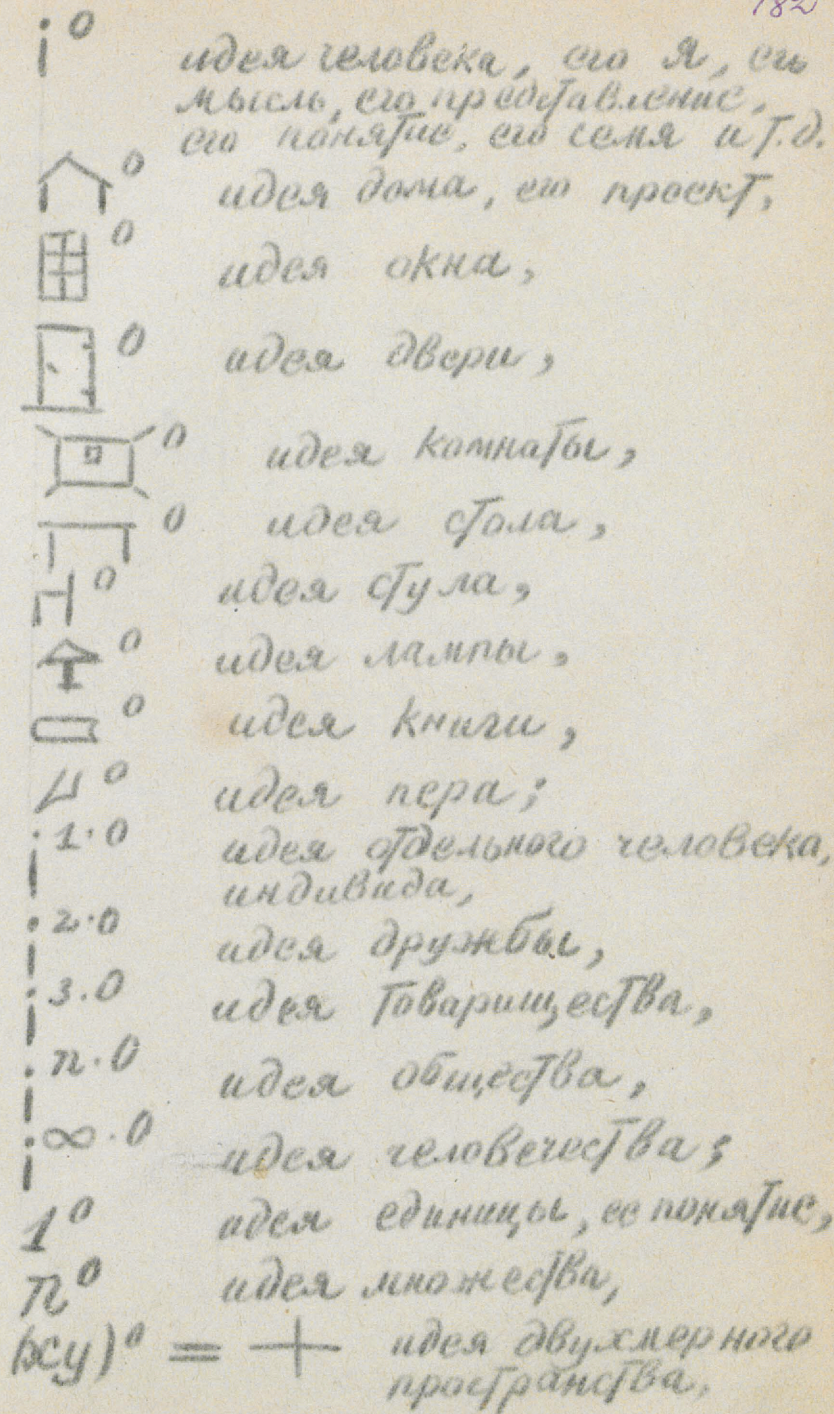 182
0 идея человека, его я, его
мысль, его представление,
его понятие, его семя и т.д.
0 идея дома, его проект,
0 идея окна,
0 идея двери,
0 идея комнаты,
0 идея стола,
0 идея стула,
0 идея лампы,
0 идея книги,
0 идея пера;
1·0 идея отдельного человека,
индивида,
2·0 идея дружбы,
3·0 идея товарищества,
n·0 идея общества,
∞·0 идея человечества;
1⁰ идея единицы, ее понятие,
n⁰ идея множества,
(xy)⁰ = + идея двухмерного
пространства,